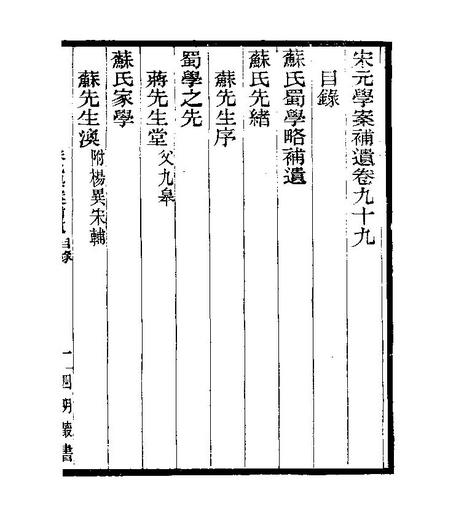 宋元學案補遺卷九十九
目錄
蘇氏蜀學略補遺
蘇氏先緒
蘇先生序
蜀學之先
蔣先生堂 父九皋
蘇氏家學
蘇先生渙 附楊異朱輔
目錄
一
四明叢書